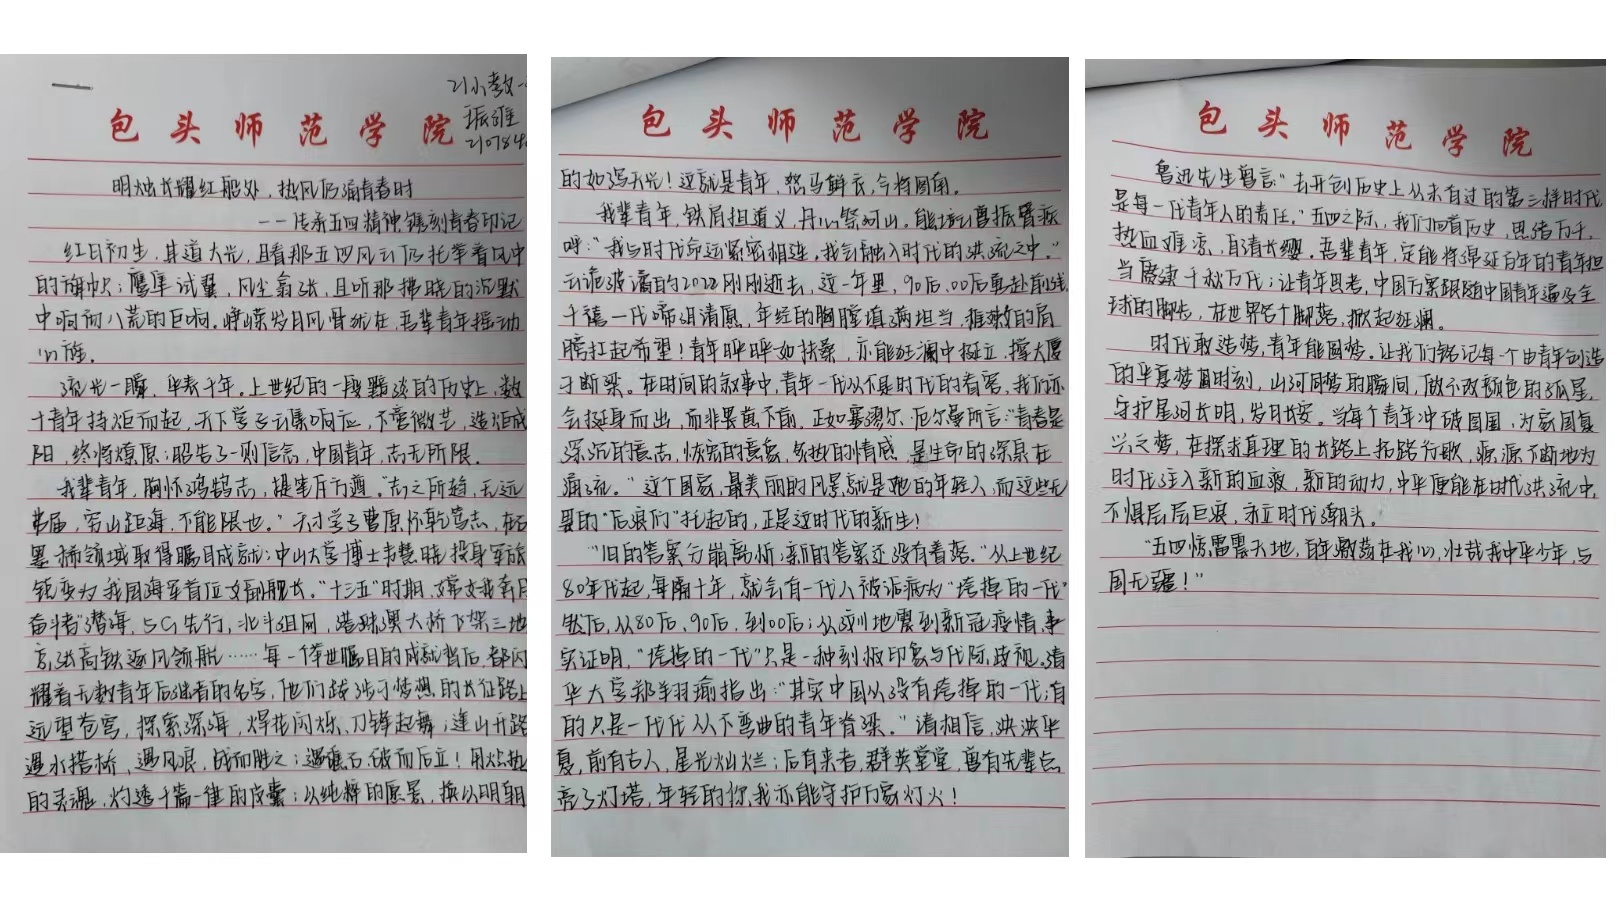 21小教一
振雄
包头师范学院
明烛长耀红船处,热风仍涌青春时
——传承五四精神镌刻青春印记
红日初生,其道大光,且看那五四风云仍托举着风中
的旗帜;鹰隼试翼,风尘翕张,且听那拂晓的沉默
中响彻八荒的巨响。峥嵘岁月风骨犹在,吾辈青年摇动
心旌。
流光一瞬,华表千年。上世纪的一段黯淡的历史上,数
十青年持炬而起,天下学子云集响应,不啻微芒,造炬成
阳,终将燎原;昭告了一则信念,中国青年,志无所限。
我辈青年,胸怀鸿鹄志,提笔斥方遒。“志之所趋,无远
弗届,穷山距海,不能限也。”天才学子曹原怀乾笃志,在石
墨烯领域取得瞩目成就;中山大学博士韦慧晓投身军旅
锐变为我国海军首位女副舰长。“十三五”时期,嫦娥奔月
奋斗者”潜海,5G先行,北斗组网,港珠澳大桥飞架三地
京张高铁逐风领航……每一个举世瞩目的成就背后,都闪
耀着无数青年后继者的名字,他们跋涉于梦想的长征路上
远望苍穹,探索深海,焊花闪烁,刀锋起舞;逢山开路
遇水搭桥,遇风浪,战而胜之;遇礁石,破而后立!用炽热
的灵魂,灼透千篇一律的皮囊;以纯粹的愿景,换以明朝
包头师范学院
的如泻天光!这就是青年,怒马鲜衣,今将圆角。
我辈青年,铁肩担道义,丹心誉河山。熊培云曾振臂疾
呼:“我与时代命运紧密相连,我会融入时代的洪流之中。”
云诡波谲的2022刚刚逝去,这一年里,90后、00后勇赴前线,
千禧一代啼泪请愿,年轻的胸膛填满担当,稚嫩的肩
膀扛起希望!青年晔晔如扶桑,亦能狂澜中挺立,撑大厦
于断梁。在时间的叙事中,青年一代从不是时代的看客,我们亦
会挺身而出,而非畏葸不前。正如塞缪尔·厄尔曼所言:“青春是
深沉的意志,恢宏的意象,炙热的情感,是生命的深泉在
涌流。”这个国家,最美丽的风景就是她的年轻人,而这些无
畏的“后浪们”托起的,正是这时代的新生!
“旧的答案分崩离析;新的答案还没有着落。”从上世纪
80年代起,每隔十年,就会有一代人被诟病为“垮掉的一代”
然后,从80后,90后,到00后;从汶川地震到新冠疫情,事
实证明,“垮掉的一代”只是一种刻板印象与代际歧视。清
华大学郑羽瑜指出:“其实中国从没有垮掉的一代;有
的只是一代代从不弯曲的青年脊梁。”请相信,泱泱华
夏,前有古人,星光灿烂;后有来者,群英堂堂,曾有先辈点
亮了灯塔,年轻的你我亦能守护万家灯火!
包头师范学院
鲁迅先生曾言“去开创历史上从未有过的第三样时代
是每一代青年人的责任。”五四之际,我们回首历史,思绪万千,
热血难凉,自请长缨。吾辈青年,定能将绵延百年的青年担
当赓续千秋万代;让青年思考,中国方案跟随中国青年遍及全
球的脚步,在世界各个脚落,掀起狂澜。
时代敢造梦,青年能圆梦。让我们铭记每一个由青年创造
的华夏梦圆时刻,山河同梦的瞬间,做个改颜色的孤星,
守护星河长明,岁月长安。当每个青年冲破囹圄,为家国复
兴之梦,在探求真理的长路上拓路行歌,源源不断地为
时代注入新的血液,新的动力,中华便能在时代洪流中,
不惧层层巨浪,永立时代潮头。
“五四惊雷震天地,百年激荡在我心,壮哉我中华少年,与
国无疆!”